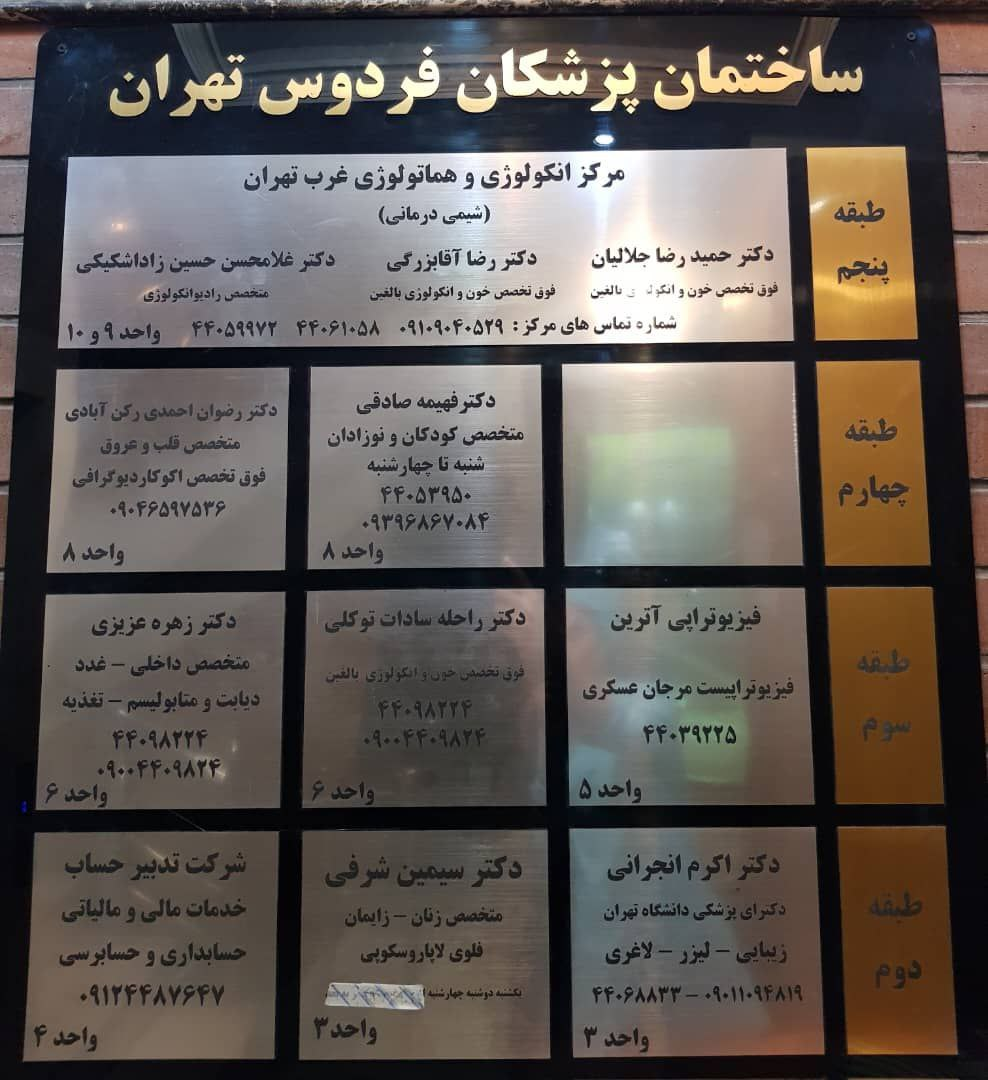 ساختمان پزشکان فردوس تهران
طبقه
پنجم
مرکز انکولوژی و هماتولوژی غرب تهران
(شیمی درمانی)
دکتر حمید رضا جلالیان
فوق تخصص خون و انکولوژی بالغین
دکتر رضا آقابزرگی
فوق تخصص خون و انکولوژی بالغین
دکتر غلامحسن حسین زاداشکیکی
متخصص رادیوانکولوژی
شماره تماس های مرکز : ۰۹۱۰۹۰۴۰۵۲۹ ۴۴۰۶۱۰۵۸ ۴۴۰۵۹۹۷۲ واحد ۹ و ۱۰
طبقه
چهارم
دکترفهیمه صادقی
متخصص کودکان و نوزادان
شنبه تا چهارشنبه
۴۴۰۵۳۹۵۰
۰۹۳۹۶۸۶۷۰۸۴
واحد ۸
دکتر رضوان احمدی رکن آبادی
متخصص قلب و عروق
فوق تخصص اکوکاردیوگرافی
۰۹۰۴۶۵۹۷۵۳۶
واحد ۸
طبقه
سوم
فیزیوتراپی آترین
فیزیوتراپیست مرجان عسکری
۴۴۰۳۹۲۲۵
واحد ۵
دکتر راحله سادات توکلی
فوق تخصص خون و انکولوژی بالغین
۴۴۰۹۸۲۲۴
۰۹۰۰۴۴۰۹۸۲۴
واحد ۶
دکتر زهره عزیزی
متخصص داخلی – غدد
دیابت و متابولیسم – تغذیه
۴۴۰۹۸۲۲۴
۰۹۰۰۴۴۰۹۸۲۴
واحد ۶
طبقه
دوم
دکتر اکرم انجرانی
دکترای پزشکی دانشگاه تهران
زیبایی – لیزر – لاغری
۰۹۰۱۱۰۹۴۸۱۹ – ۴۴۰۶۸۸۳۳
واحد ۳
دکتر سیمین شرفی
متخصص زنان – زایمان
فلوی لاپاروسکوپی
یکشنبه دوشنبه چهارشنبه
واحد ۳
شرکت تدبیر حساب
خدمات مالی و مالیاتی
حسابداری و حسابرسی
۰۹۱۲۴۴۸۷۶۴۷
واحد ۴